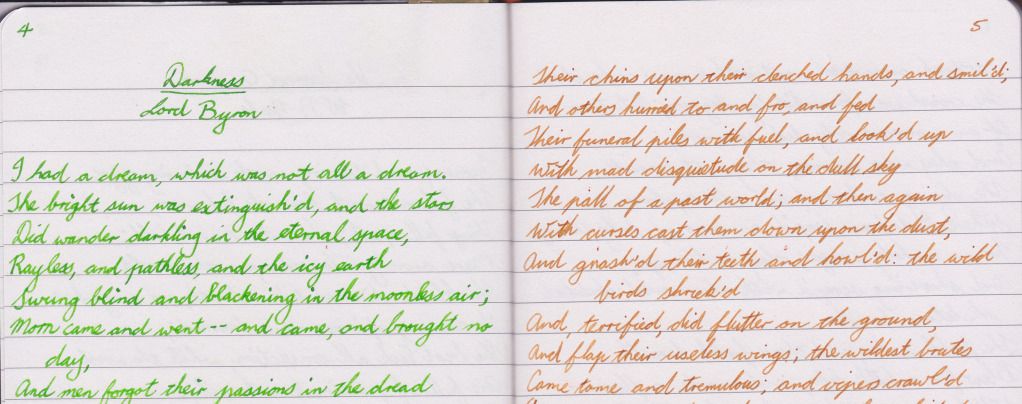 4
Darkness
Lord Byron
I had a dream, which was not all a dream.
The bright sun was extinguish'd, and the stars
Did wander darkling in the eternal space,
Rayless, and pathless, and the icy earth
Swung blind and blackening in the moonless air;
Morn came and went -- and came, and brought no
day,
And men forgot their passions in the dread
5
Their chins upon their clenched hands, and smil'd;
And others hurried to and fro, and fed
Their funeral piles with fuel, and look'd up
With mad disquietude on the dull sky
The pall of a past world; and then again
With curses cast them down upon the dust,
And gnash'd their teeth and howl'd: the wild
birds shriek'd
And, terrified, did flutter on the ground,
And flap their useless wings; the wildest brutes
Came tame and tremulous; and vipers crawl'd